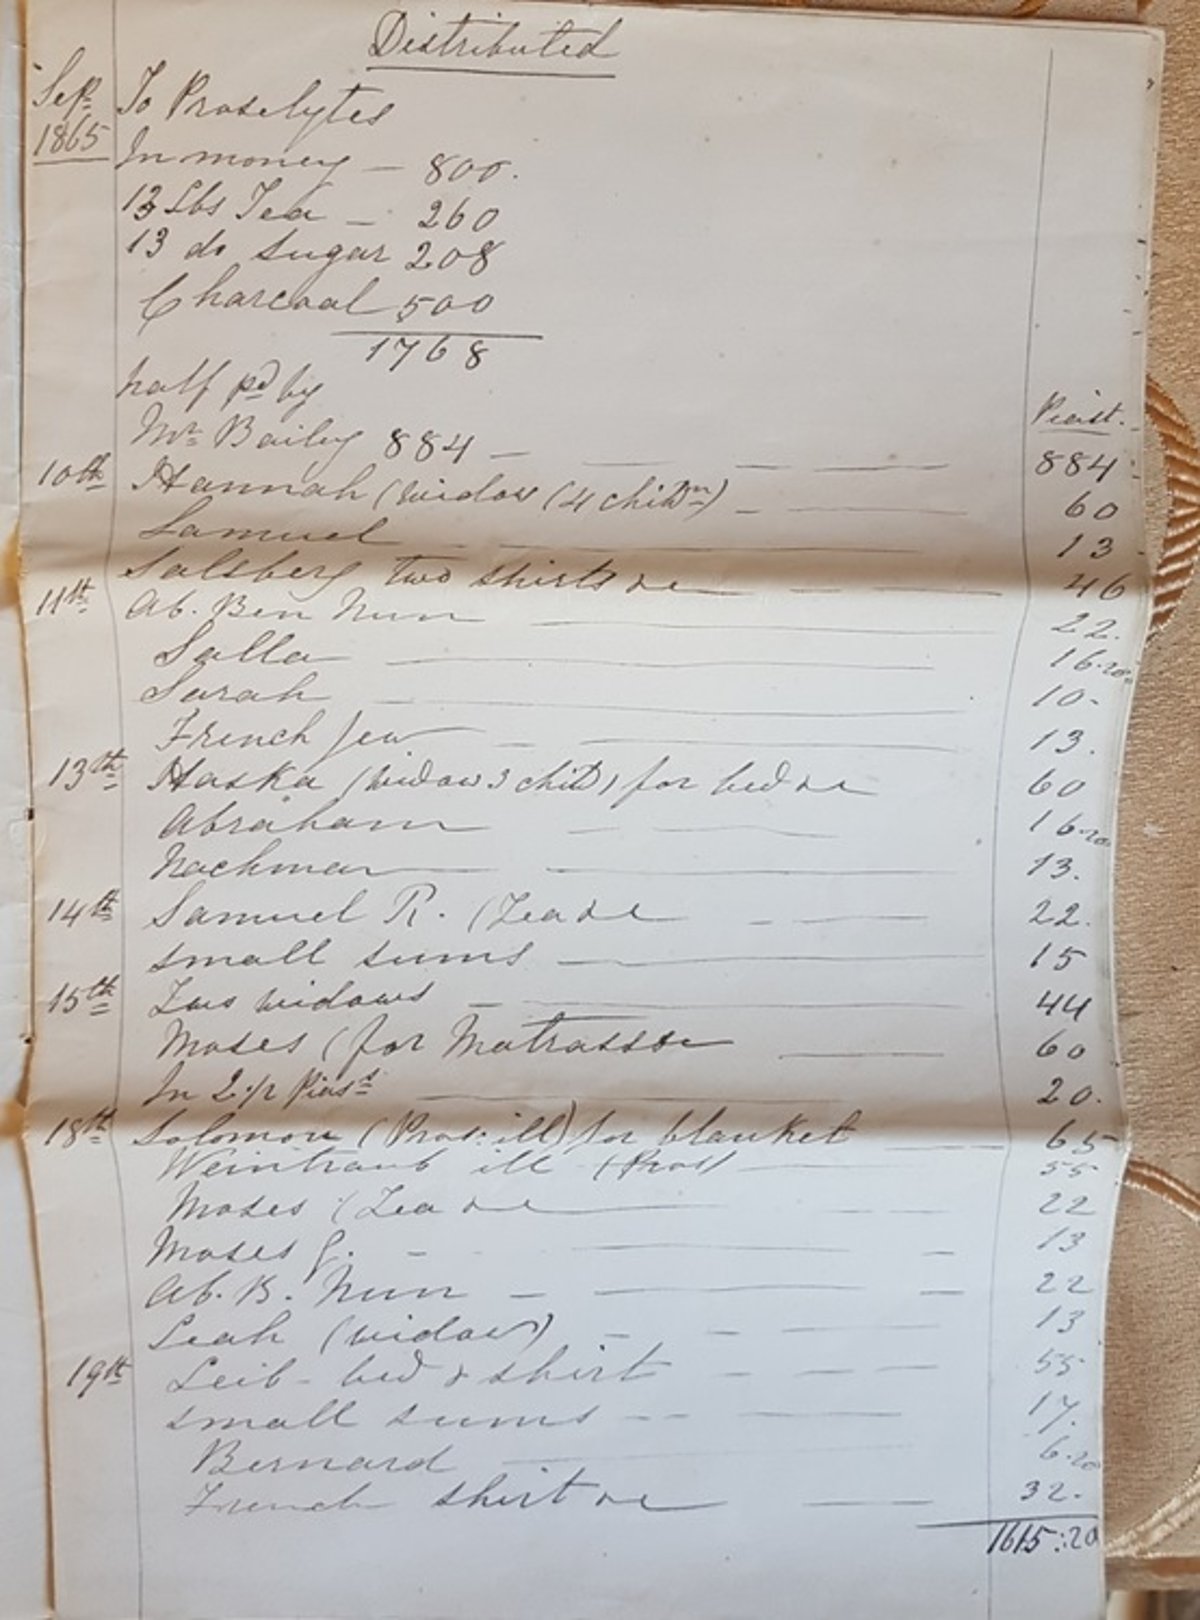 Distributed
Sep. To Proselytes
1865 In money - 800.
13 Lbs Tea - 260
13 do sugar 208
Charcoal 500
1768
half pd by
Piast.
Mr Bailey 884 - 884
10th Hannah (widow (4 childn) - 60
Samuel 13
Salsberg two shirts &c 46
11th Ab. Ben Nun 22.
Salla 16.20
Sarah 10-
French Jew 13.
13th Haska (widow 3 child) for bed &c 60
Abraham 16.20
Nachman 13.
14th Samuel R. (Tea &c 22.
small sums 15
15th Two widows 44
Moses (for Matrasse 60
In 2 1/2 Piast 20.
18th Solomon (Pros. ill) for blanket 65
Weintraub ill (Pros) 55
Moses (Tea &c 22
Moses J. 13
Ab. B. Nun 22
Leah (widow) 13
19th Leib - bed & shirt 55
small sums 17.
Bernard 6.20
French shirt &c 32.
1615:20